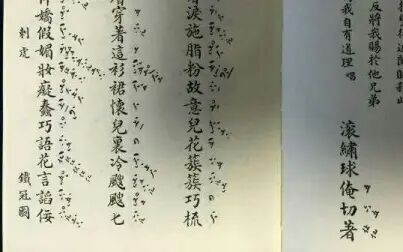 反將我賜於他兄弟
我自有道理 唱
滾繡球俺切著
淚施脂粉故意兒花簇簇巧梳
穿著這衫裙懷兒裏冷颼颼七
嬌假媚妝癡蠢巧語花言諂佞
刺虎 鐵冠圖